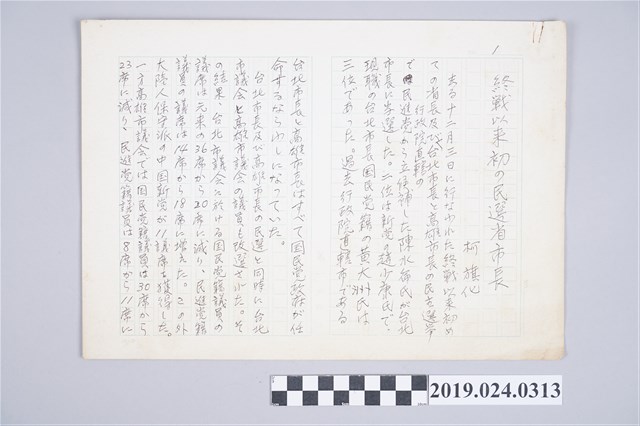 1
終戦以来初の民選省市長
柯旗化
去る十二月三日に行なわれた終戦以来初め
ての省長及び台北市長、高雄市長の民主選挙
行政院直轄の
で民進党から立候補した陳水扁氏が台北
市長に当選した。二位は新党の趙少康氏で、
現職の台北市長国民党籍の黄大洲氏は
三位であった。過去行政院直轄市である
台北市長と高雄市長はすべて国民党政府が任
命するならわしになっていた。
台北市長及び高雄市長の民選と同時に台北
市議会と高雄市議会の議員も改選された。そ
の結果、台北市議会に於ける国民党籍議員の
議席は元来の36席から20席に減り、民進党籍
議員の議席は14席から18席に増えた。この外
大陸人保守派の中国新党が11議席を獲得した。
一方高雄市議会では国民党籍議員は30席から
23席に減り、民進党籍議員は8席から11席に
2019.024.0313